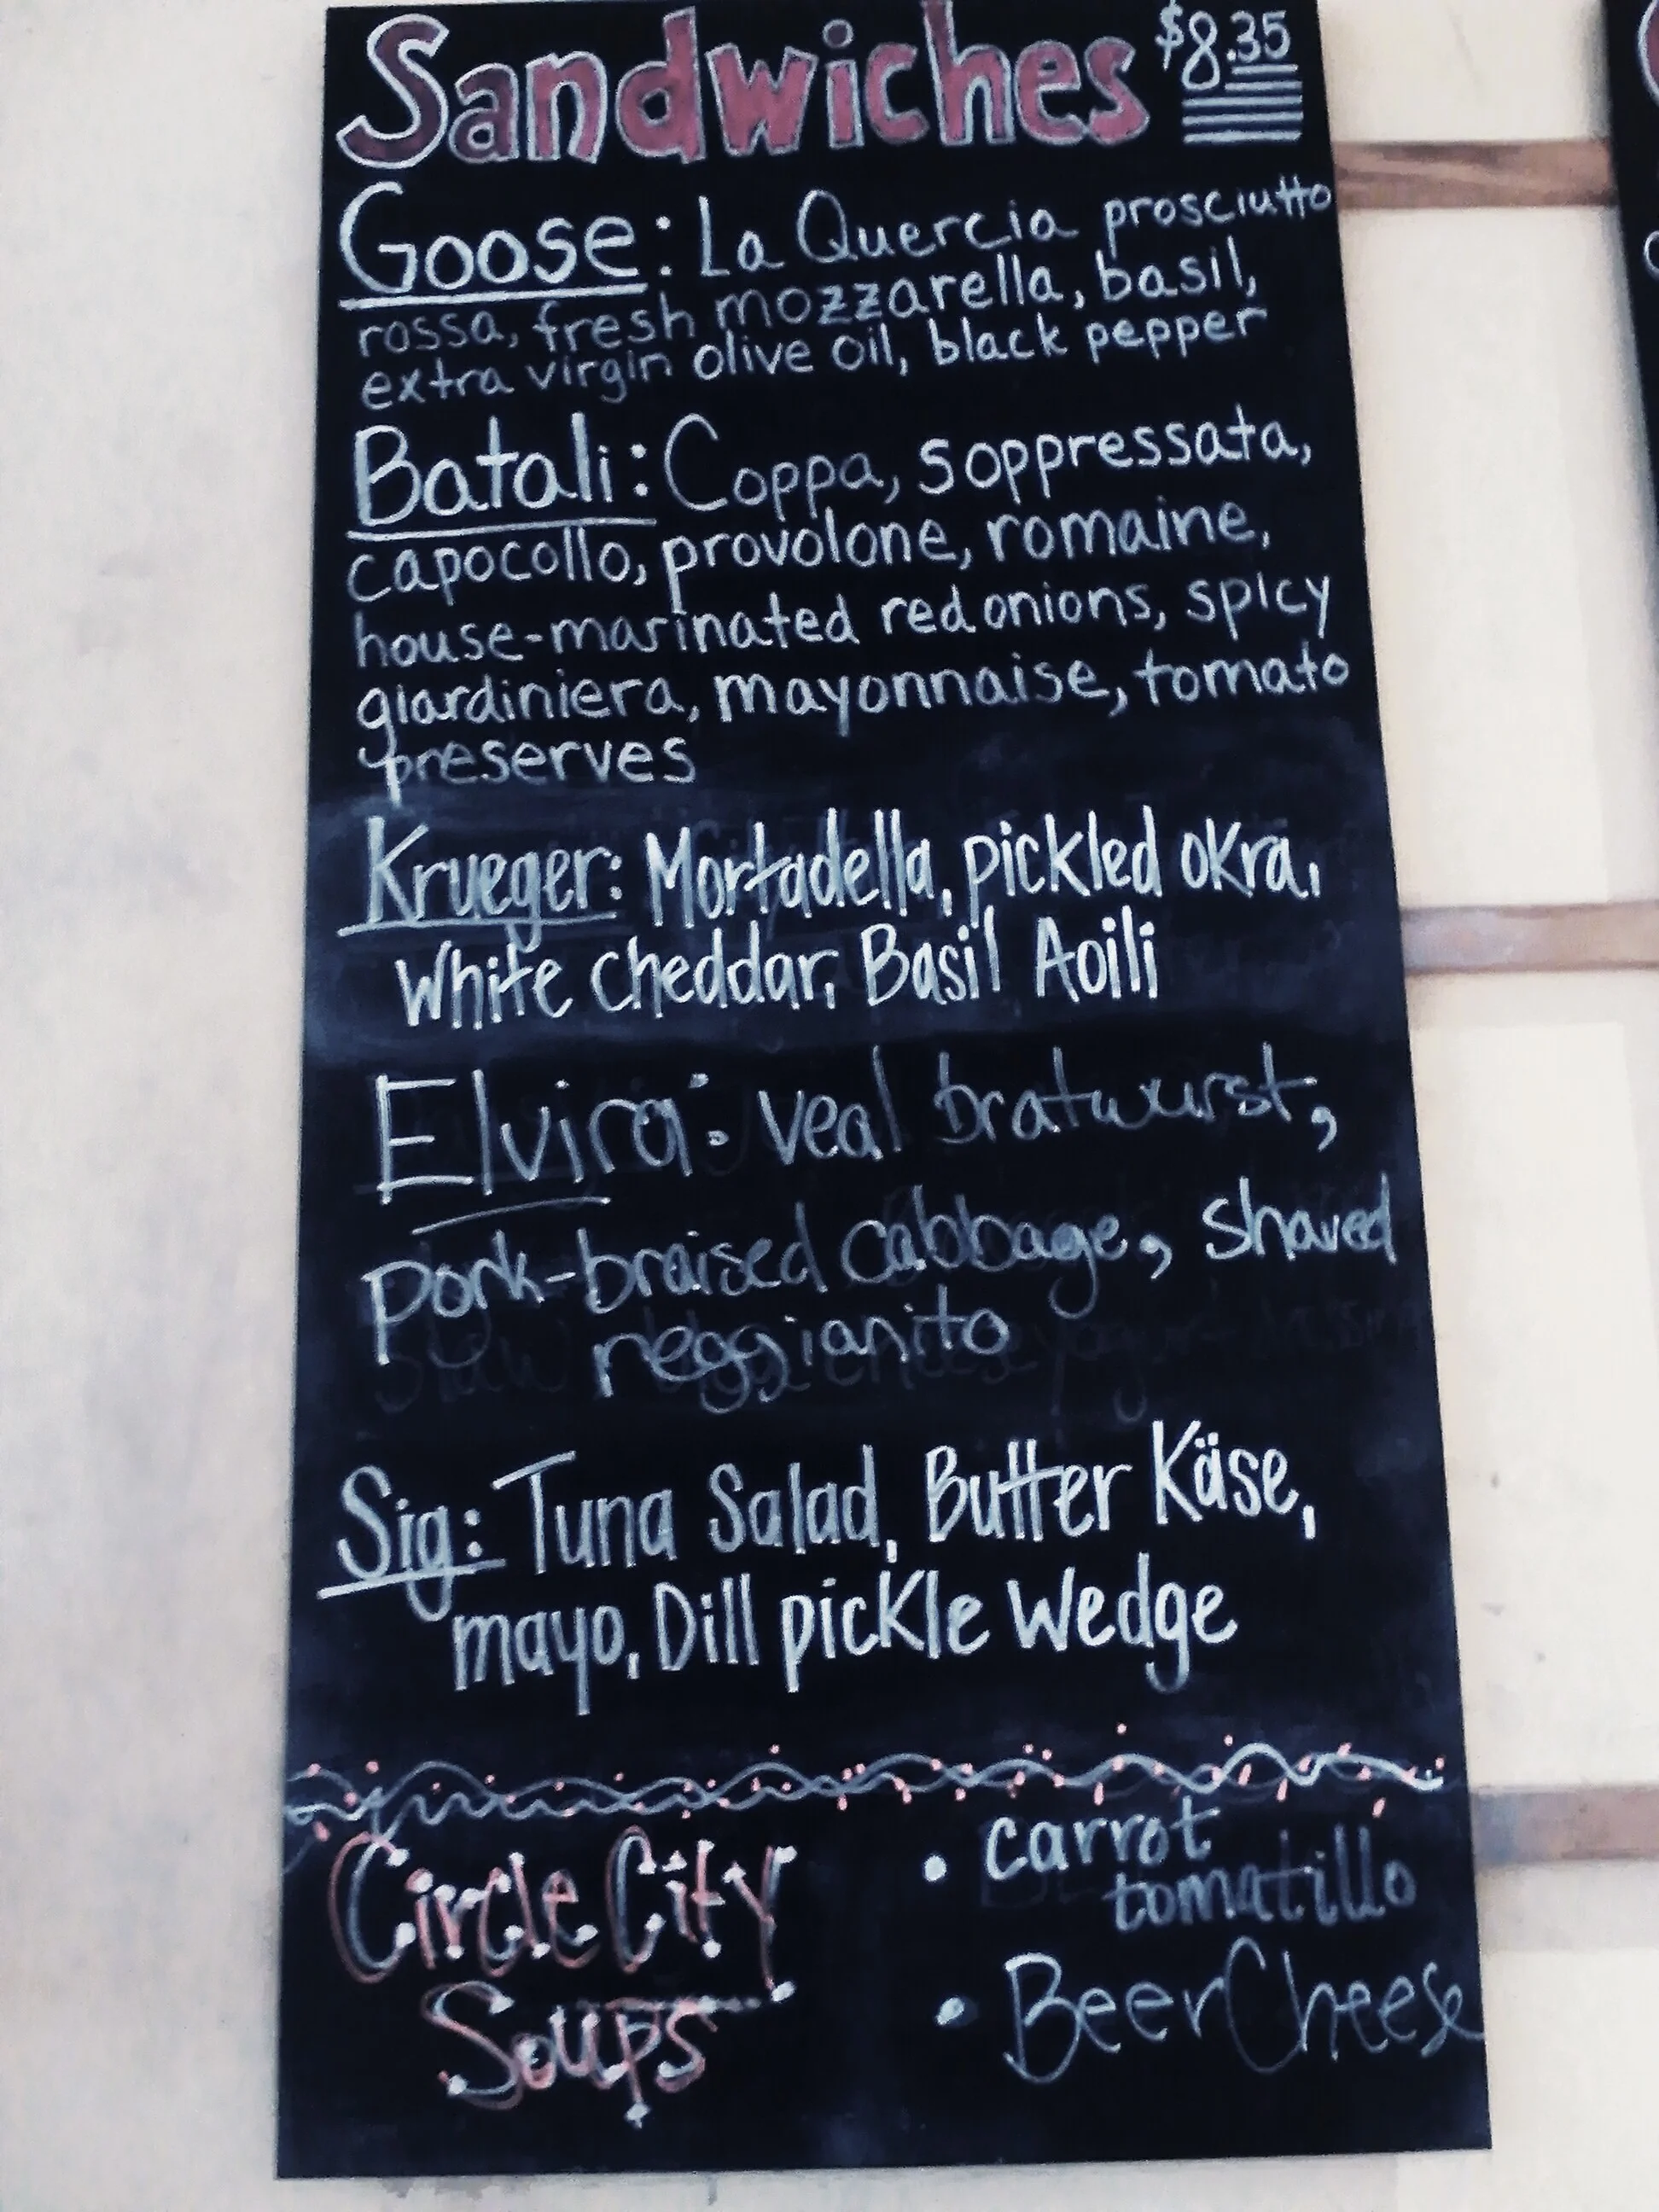 Sandwiches $8.35
Goose: La Quercia prosciutto
rossa, fresh mozzarella, basil,
extra virgin olive oil, black pepper
Batali: Coppa, soppressata,
capocollo, provolone, romaine,
house-marinated red onions, spicy
giardiniera, mayonnaise, tomato
preserves
Krueger: Mortadella, pickled okra,
White cheddar, Basil Aoili
Elvira: veal bratwurst,
pork-braised cabbage, shaved
reggianito
Sig: Tuna Salad, Butter Käse,
mayo, Dill pickle Wedge
Circle City
Soups
• carrot
tomatillo
• Beer Cheese